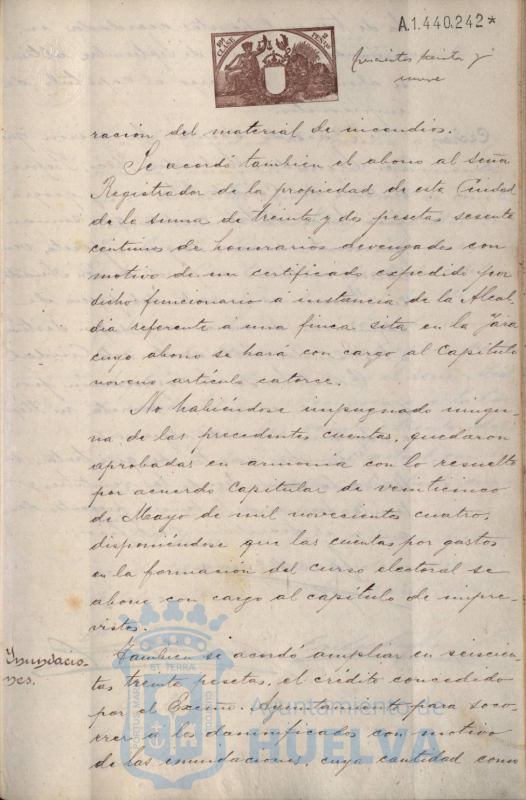 A.1.440.242*
10ª CLASE
2 PESETAS
trescientos treinta y
nueve
ración del material de incendios.
Se acordó tambien el abono al señor
Registrador de la propiedad de esta Ciudad
de la suma de treinta y dos pesetas sesenta
centimos de honorarios devengados con
motivo de un certificado expedido por
dicho funcionario á instancia de la Alcal
dia referente á una finca sita en la Jara
cuyo abono se hará con cargo al Capitulo
noveno artículo catorce.
No habiéndose impugnado ningu-
na de las precedentes cuentas, quedaron
aprobadas en armonia con lo resuelto
por acuerdo Capitular de veinticinco
de Mayo de mil novecientos cuatro,
disponiéndose que las cuentas por gastos
en la formación del curso electoral se
abone con cargo al capitulo de impre-
vistos.
Ynundacio-
nes.
Tambien se acordó ampliar en seiscien-
tas treinta pesetas, el crédito concedido
por el Excmo. Ayuntamiento para soco-
rrer a los damnificados con motivo
de las inundaciones, cuya cantidad como
Ayuntamiento de
HUELVA
PORTUS MARIS ET TERRAE CUSTODIA